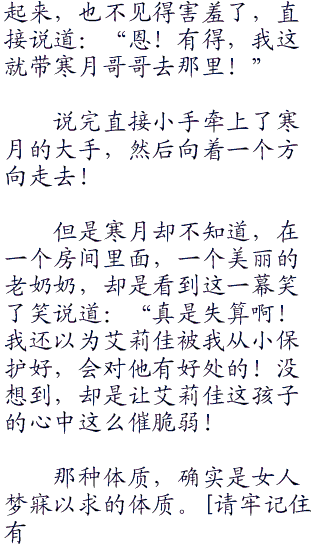 起来，也不见得害羞了，直
接说道：“恩！有得，我这
就带寒月哥哥去那里！”
说完直接小手牵上了寒
月的大手，然后向着一个方
向走去！
但是寒月却不知道，在
一个房间里面，一个美丽的
老奶奶，却是看到这一幕笑
了笑说道：“真是失算啊！
我还以为艾莉佳被我从小保
护好，会对他有好处的！没
想到，却是让艾莉佳这孩子
的心中这么催脆弱！
那种体质，确实是女人
梦寐以求的体质。[请牢记住
有